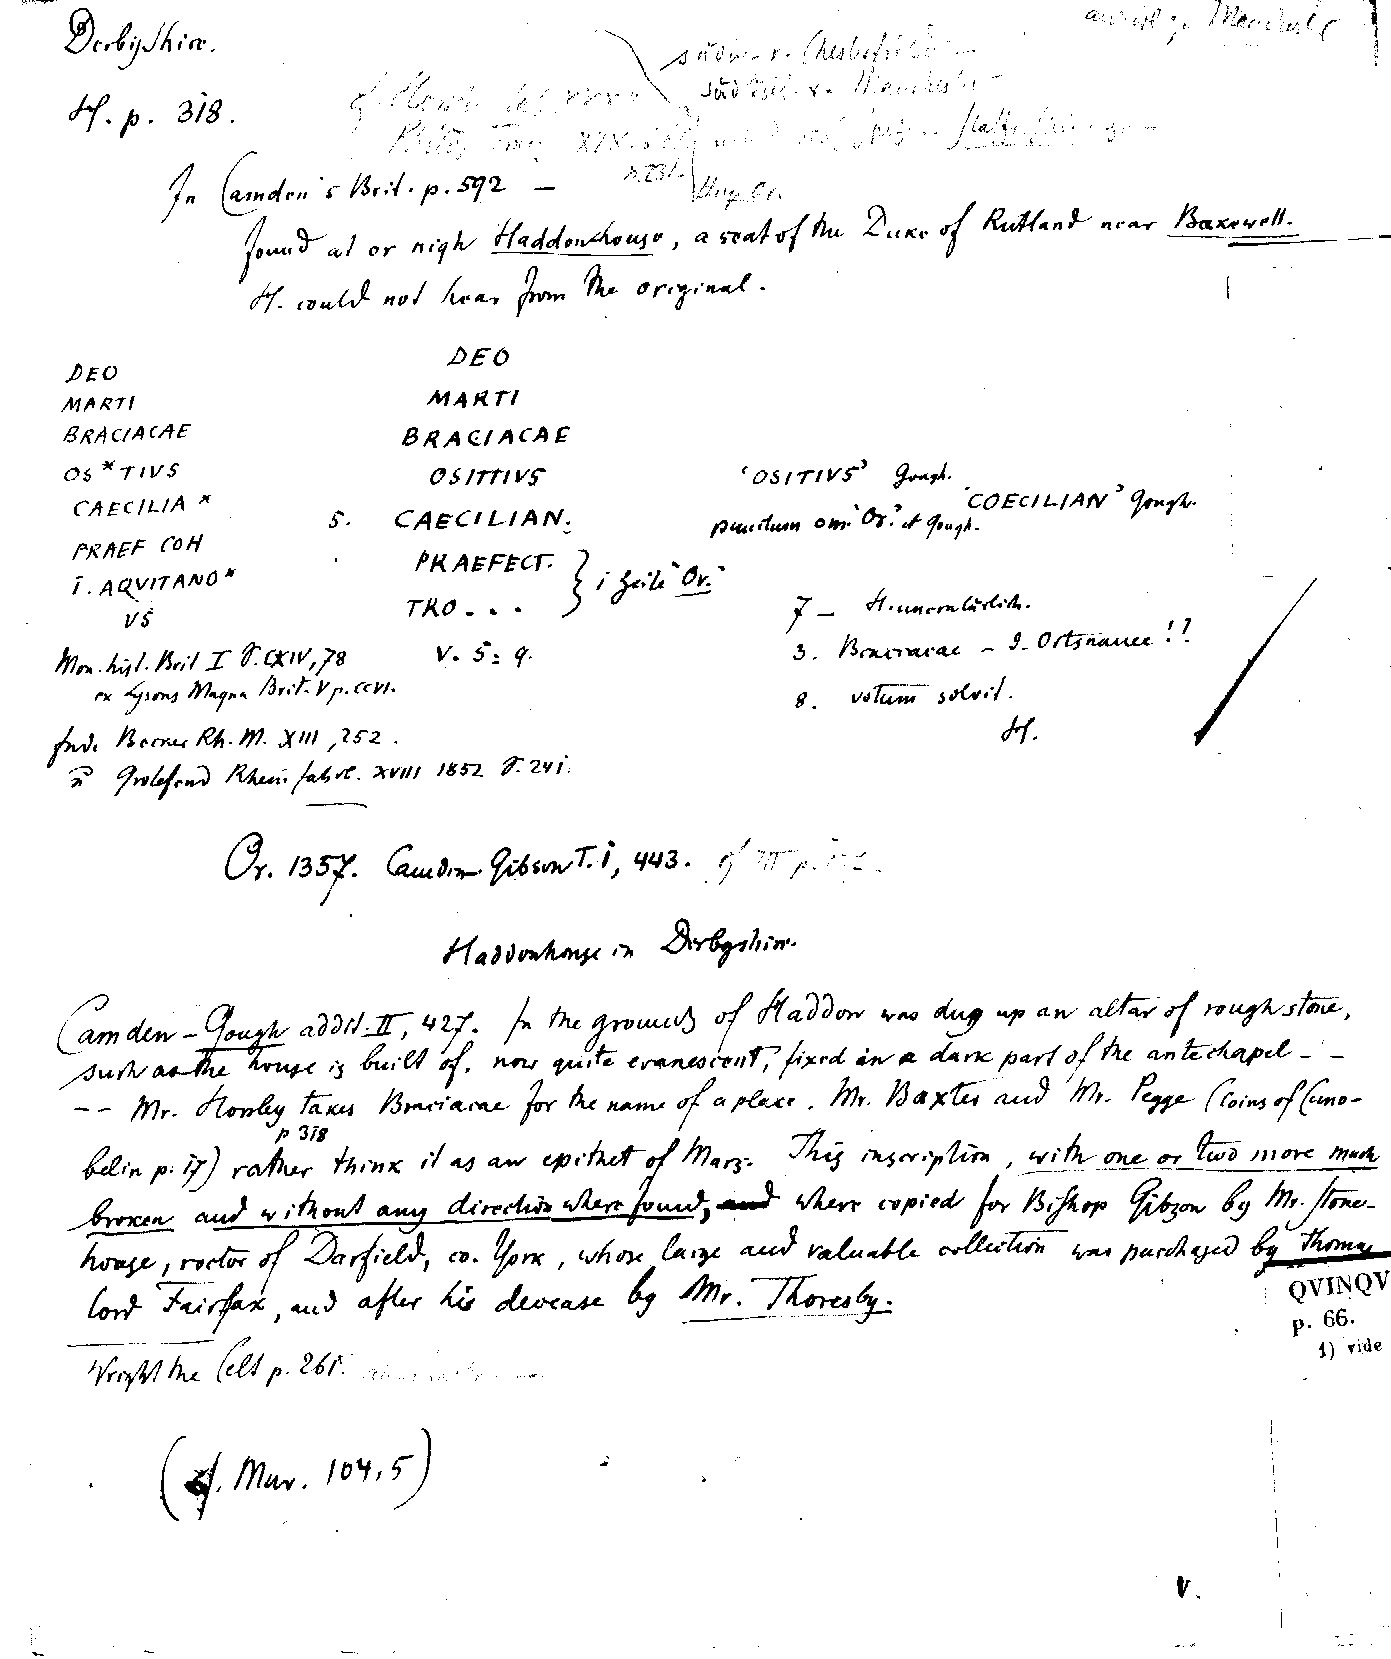 Derbyshire.
H. p. 318.
südw. v. Chesterfield
südöstl. v. Manchester
In Camden's Brit. p. 592 —
found at or nigh Haddonhouse, a seat of the Duke of Rutland near Bakewell.
H. could not hear from the original.
DEO
MARTI
BRACIACAE
OS*TIVS
CAECILIA*
PRAEF COH
I. AQVITANO*
VS
Mon. hist. Brit I S. CXIV, 78
ex Lysons Magna Brit. V p. CCVI.
Becker Rh. M. XIII, 252.
Grotefend Rhein. Jahrb. XVIII 1852 S. 241.
DEO
MARTI
BRACIACAE
OSITTIVS
5. CAECILIAN.
PRAEFECT.
TRO... } 1 Zeile "Or."
V. S: q.
'OSITIVS' Gough.
'COECILIAN' Gough.
punctum om. "Or." et Gough.
7 —
3. Braciacae — Ortsname!?
8. votum solvit.
H.
Or. 1357. Camden Gibson T. I, 443.
Haddonhouse in Derbyshire.
Camden-Gough addit. II, 427. In the grounds of Haddon was dug up an altar of rough stone,
such as the house is built of, now quite evanescent, fixed in a dark part of the antechapel - -
-- Mr. Horsley takes Braciacae for the name of a place. Mr. Baxter and Mr. Pegge (Coins of Cuno-
p 318
belin p. 17) rather think it as an epithet of Mars. This inscription, with one or two more much
broken and without any direction where found, and where copied for Bishop Gibson by Mr. Stone-
house, rector of Darfield, co. York, whose large and valuable collection was purchased by Thomas
lord Fairfax, and after his decease by Mr. Thoresby.
QVINQV
p. 66.
1) vide
Wright the Celt p. 261.
(cf. Mur. 104, 5)
V.